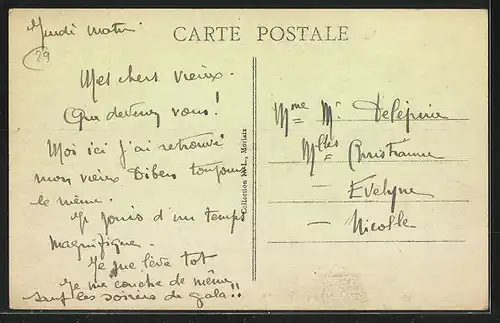 Jeudi matin
29
CARTE POSTALE
Mes chers vieux.
Que devenez vous!
Moi ici j'ai retrouvé
mon vieux Diben toujours
le même.
Je jouis d'un temps
magnifique.
Je me lève tot
Je me couche de même,
sauf les soirées de gala!!
Collection N. L., Morlaix
Mme Mr Delépine
Mlles Christiane
— Evelyne
— Nicolle